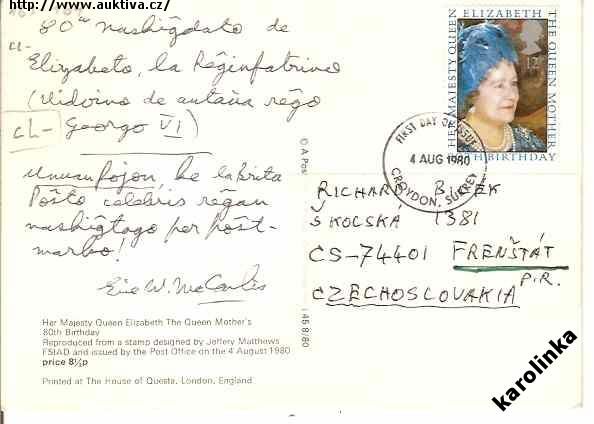 http://www.auktiva.cz/
80ᵃⁿ naskiĝdato de
Elizabeto, la Reĝinpatrino
(Vidvino de antaŭa reĝo
Georgo VI)
Unuan fojon, ke la Brita
Poŝto celebris reĝan
naskiĝtago per poŝt-
marko!
Eric W.
HER MAJESTY QUEEN ELIZABETH THE QUEEN MOTHER
80TH BIRTHDAY
12
FIRST DAY OF ISSUE
4 AUG 1980
CROYDON, SURREY
RICHARD
ŠKOLSKA 1381
CS-74401 FRENŠTÁT
P.R.
CZECHOSLOVAKIA
Her Majesty Queen Elizabeth The Queen Mother's
80th Birthday
Reproduced from a stamp designed by Jeffery Matthews
FSIAD and issued by the Post Office on the 4 August 1980
price 8½p
Printed at The House of Questa, London, England
© A Post
8/80
karolinka